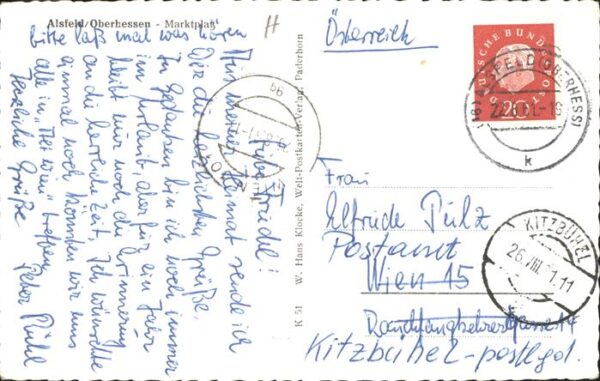 Alsfeld/Oberhessen - Marktplatz
bitte laß mal was hören
Liebe Friedel!
Aus meiner Heimat sende ich
Dir die herzlichsten Grüße.
In Gedanken bin ich noch immer
im Urlaub, aber für ein Jahr
bleibt mir noch die Erinnerung
an die herrliche Zeit. Ich wünschte
einmal noch könnten wir uns
alle in "Wien" treffen.
Herzliche Grüße
Peter
K 51 W. Hans Klocke, Welt-Postkarten-Verlag, Paderborn
Österreich
DEUTSCHE BUNDESPOST
20
ALSFELD (OBERHESS)
k
WIEN
Frau
Elfriede Pülz
Postamt
Wien 15
Kitzbühel-postlgd.
KITZBÜHEL
26.VIII. 11